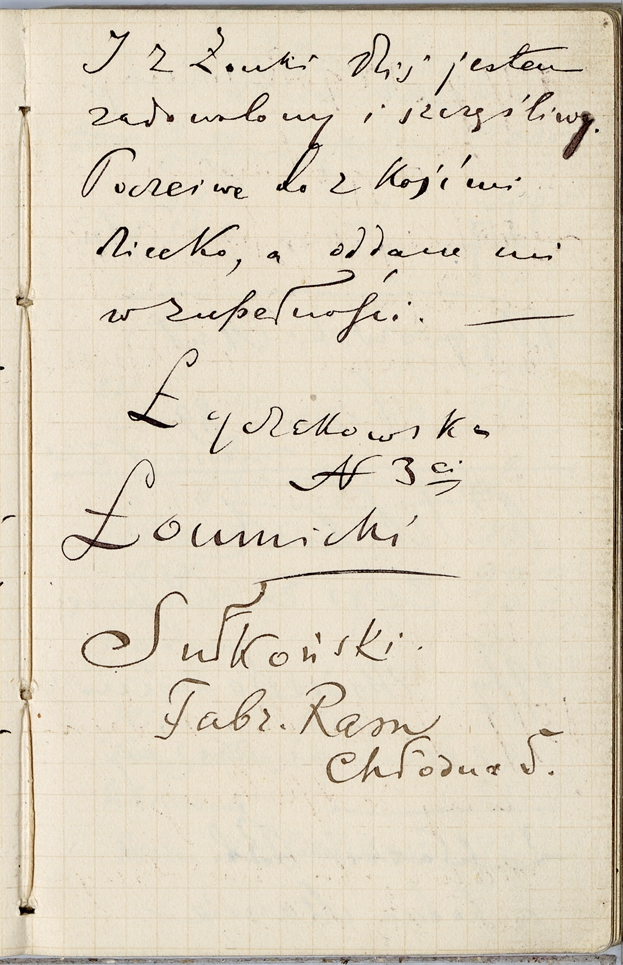 I z Żonki dziś jestem
zadowolony i szczęśliwy.
Poczciwe to z kości mi
dziecko, a oddane mi
w zupełności. —
Łączkowska
N 3ci
Łomnicki
Sułkoński.
Fabr. Ram
Chłodna 5.